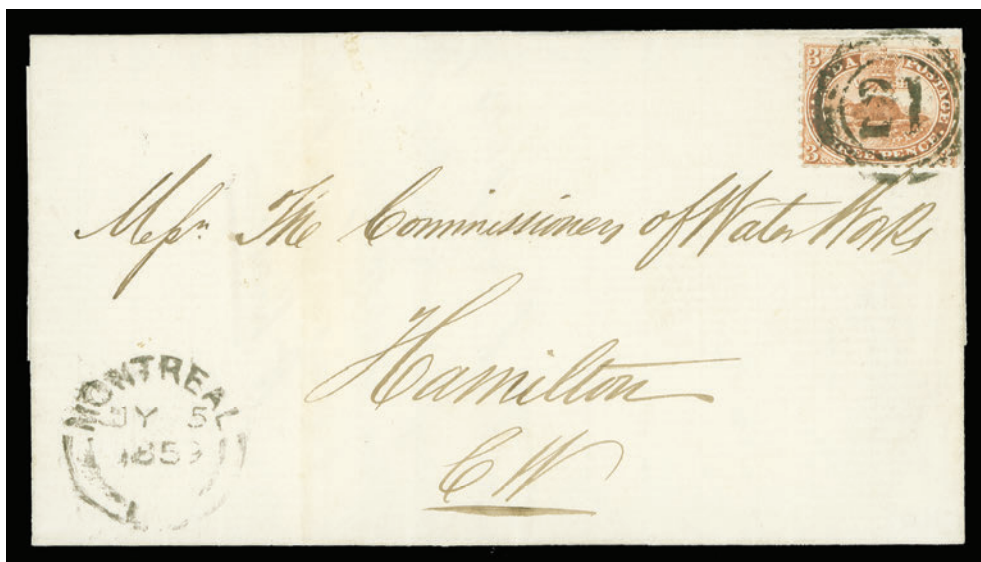 3
CANADA POSTAGE
21
3 THREE PENCE
Messrs The Commissioners of Water Works
Hamilton
CW
MONTREAL
JY 5
1859